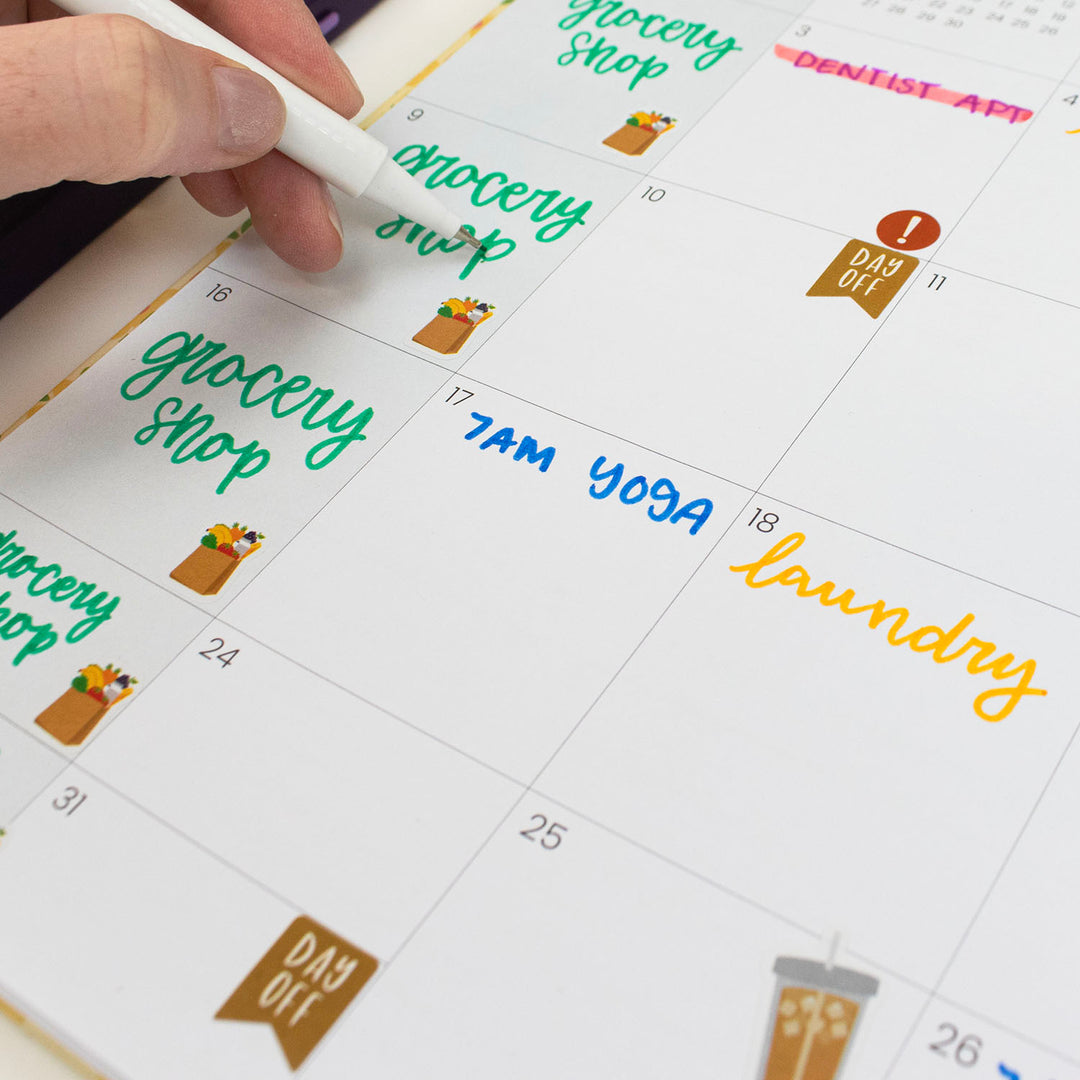 grocery
shop
3
DENTIST APT
4
27 28 29 30
23 24 25 26
9
grocery
shop
10
!
DAY
OFF
11
16
grocery
shop
17
7AM YOGA
18
laundry
grocery
shop
24
25
26
31
DAY
OFF